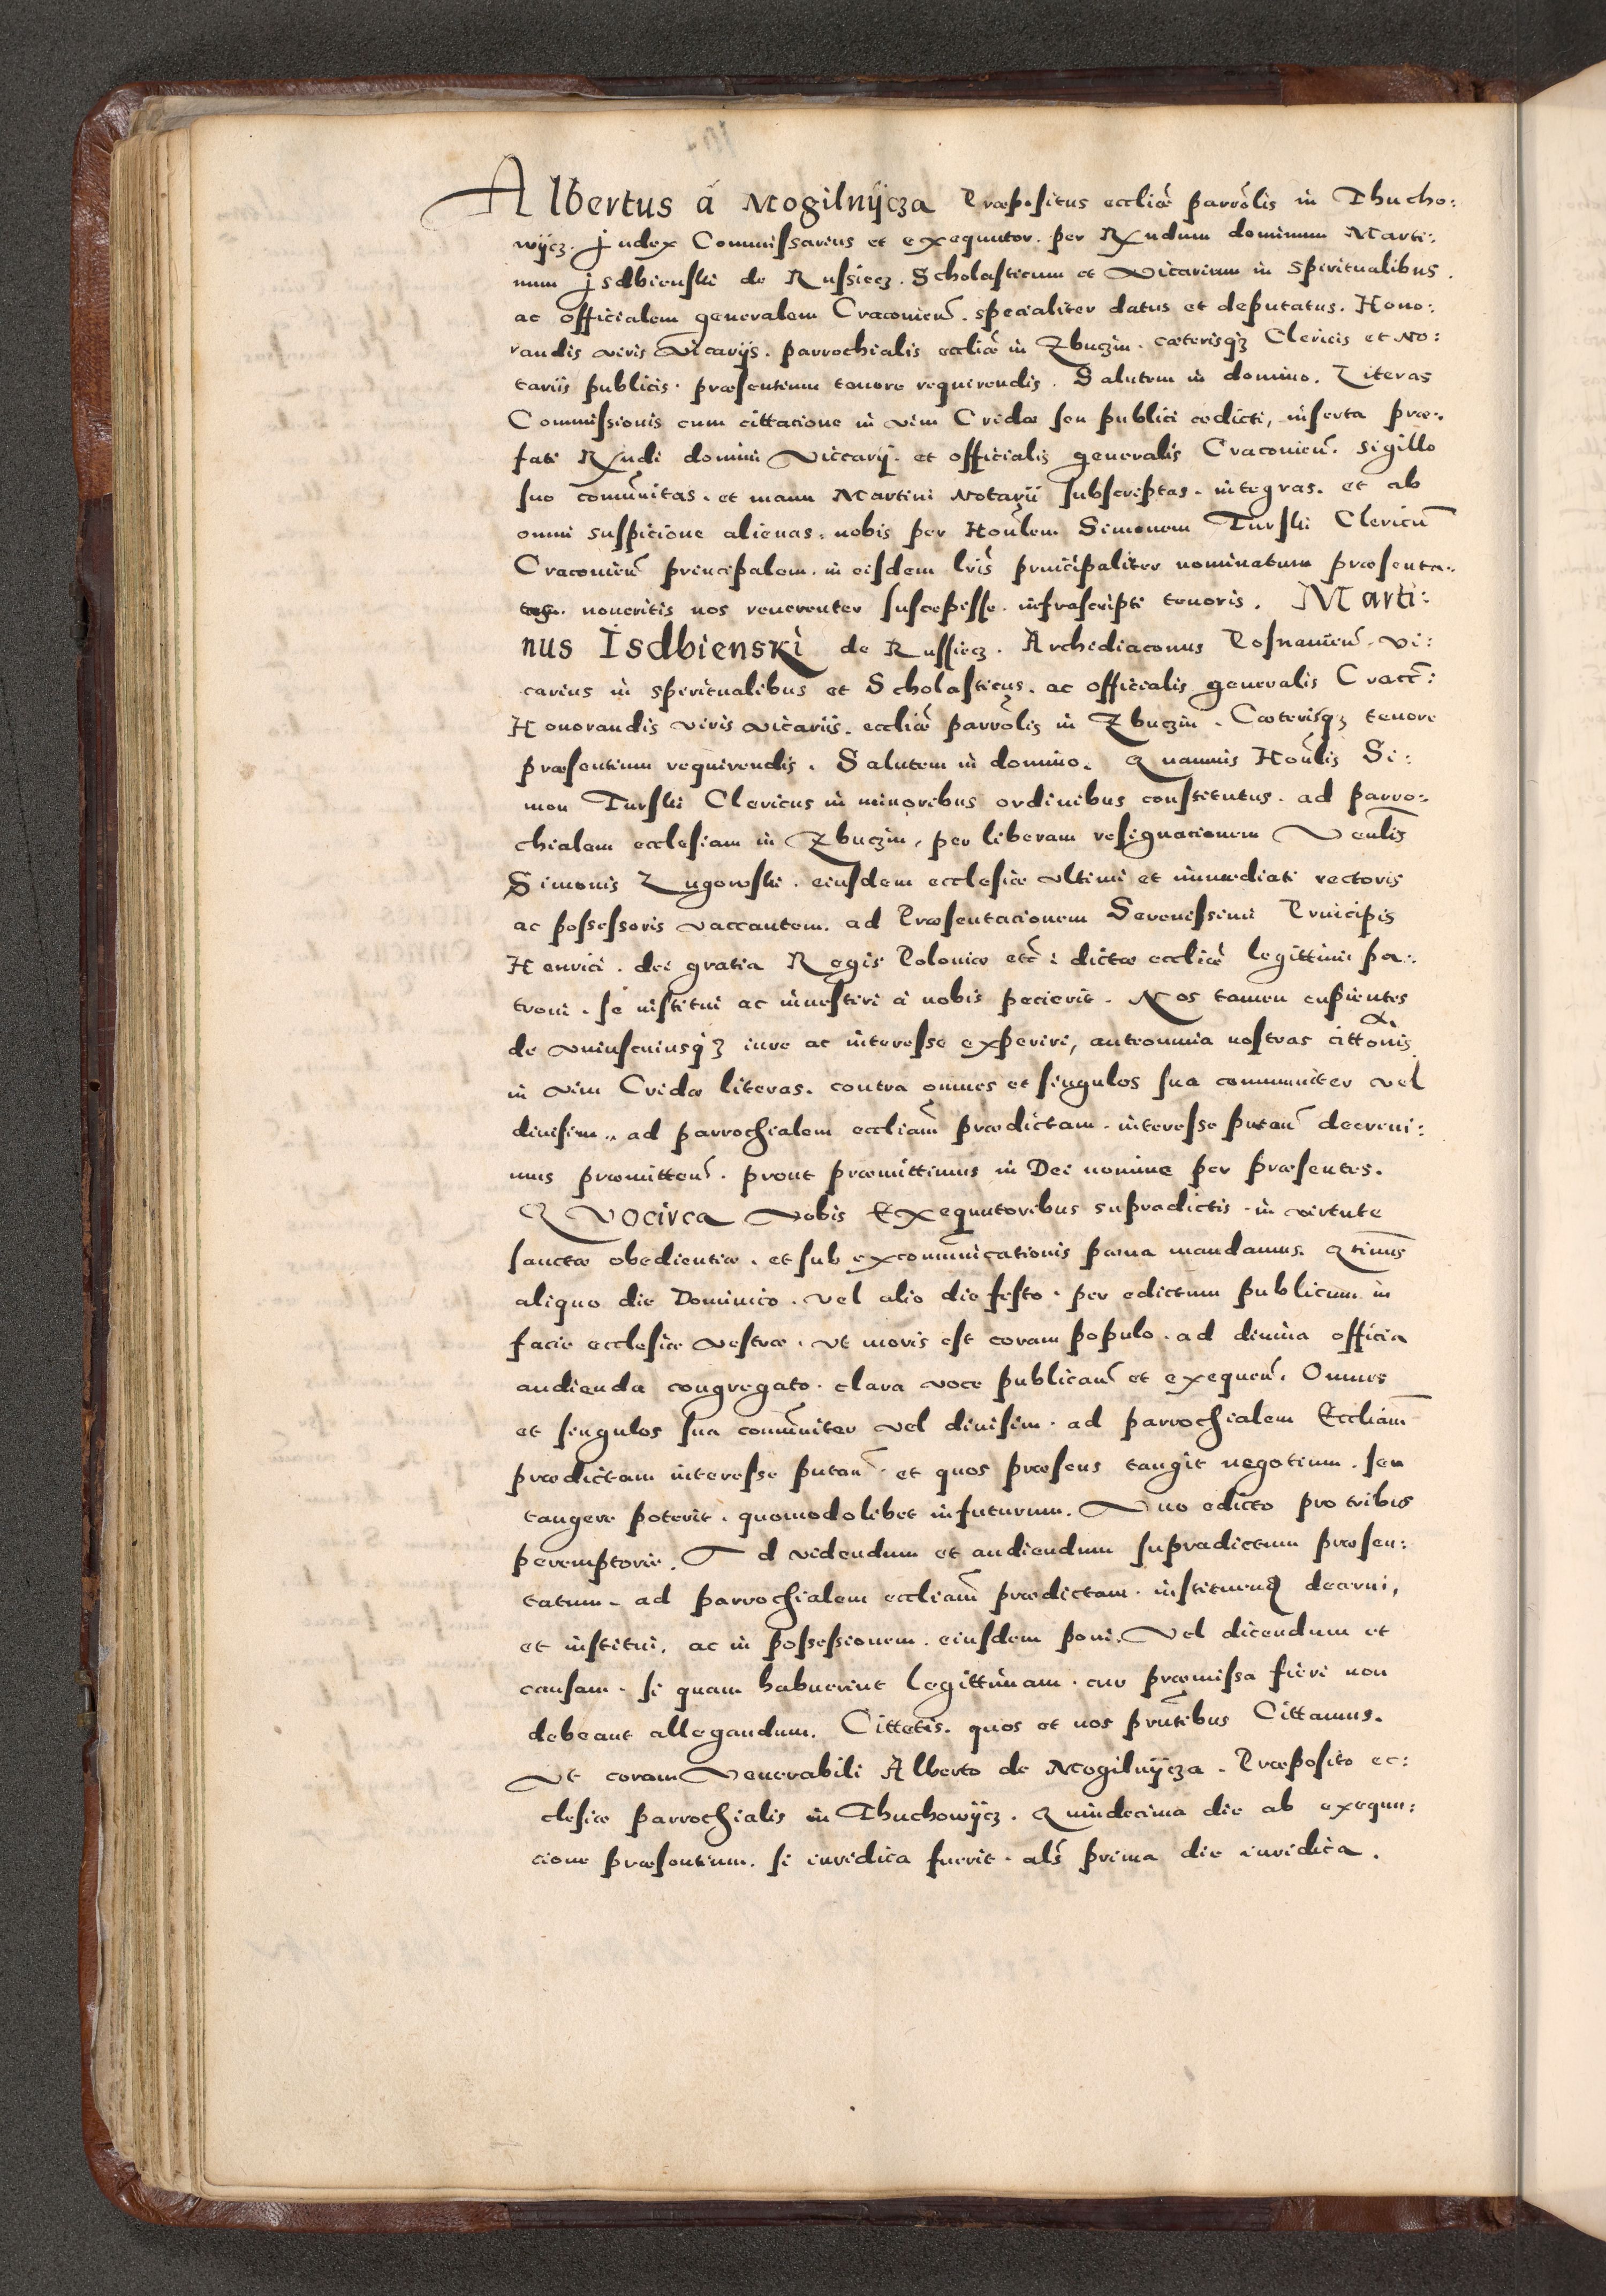 Albertus á Mogilnÿcza Præpositus eccliæ parrolis in Thucho:
wÿcz. Judex Commissarius et exequutor. per Rxndum dominum Marti:
num Jsdbienski de Russiecz. Scholasticum et Vicarium in spiritualibus.
ac officialem generalem Craconien. specialiter datus et deputatus. Hono:
randis viris Vicarijs. parrochialis eccliæ in Zbuczin. cæterisqz Clericis et No:
tariis publicis. præsentium tenore requirendis. Salutem in domino. Literas
Commissionis cum cittacione in vim Cridæ seu publici ædicti, inserta præ:
fati Rxndi domini Viccarij. et officialis generalis Craconien. sigillo
suo comunitas. et manu Martini Notarÿ subscriptas. integras. et ab
omni suspicione alienas. nobis per Honlem Simonem Turski Clericu
Craconien principalem. in eisdem lris principaliter nominatum præsenta:
tas. noueritis nos reuerenter suscæpisse. infrascripti tenoris. Marti:
nus Isdbienski de Russiecz. Archidiaconus Posnanien. vi:
carius in spiritualibus et Scholasticus. ac officialis generalis Cracc:
Honorandis viris vicariis. eccliæ parrolis in Zbuczin. Cæterisqz tenore
præsentium requirendis. Salutem in domino. Quamuis Honlis Si:
mon Turski Clericus in minoribus ordinibus constitutus. ad parro:
chialem ecclesiam in Zbuczin, per liberam resignacionem Venlis
Simonis Zugowski. eiusdem ecclesiæ vltimi et immædiati rectoris
ac possessoris vaccantem. ad Præsentacionem Serenissimi Principis
Henrici. dei gratia Regis Poloniæ etc: dictæ eccliæ legittimi pa:
troni. se institui ac inuestiri à nobis pecierit. Nos tamen cupientes
de vniuscuiusqz iure ac interesse experiri, anteomnia nostras cittonis
in vim Cridæ literas. contra omnes et singulos sua communiter vel
diuisim. ad parrochialem eccliam prædictam. interesse putan decreui:
mus præmitten. prout præmittimus in Dei nomine per præsentes.
Quocirca Vobis Exequutoribus supradictis. in virtute
sanctæ obedientiæ. et sub excomunicationis pæna mandamus. Qtinus
aliquo die Dominico. vel alio die festo. per edictum publicum in
facie ecclesiæ vestræ. vt moris est coram populo. ad diuina officia
audienda congregato. clara voce publican et exequen. Omnes
et singulos sua comuniter vel diuisim. ad parrochialem Eccliam
prædictam interesse putan. et quos præsens tangit negotium. seu
tangere poterit. quomodolibet infuturum. Vno edicto pro tribus
peremptorie. Ad videndum et audiendum supradictum præsen:
tatum. ad parrochialem eccliam prædictam. instituend decerni,
et institui. ac in possessionem. eiusdem poni. Vel dicendum et
causam. si quam habuerint legittimam. cur præmissa fieri non
debeant allegandum. Cittetis. quos et nos prntibus Cittamus.
Vt coram Venerabili Alberto de Mogilnÿcza. Præposito ec:
clesiæ parrochialis in Thuchowÿcz. Quindecima die ab exequu:
cione præsentium. si iuridica fuerit. als prima die iuridica.